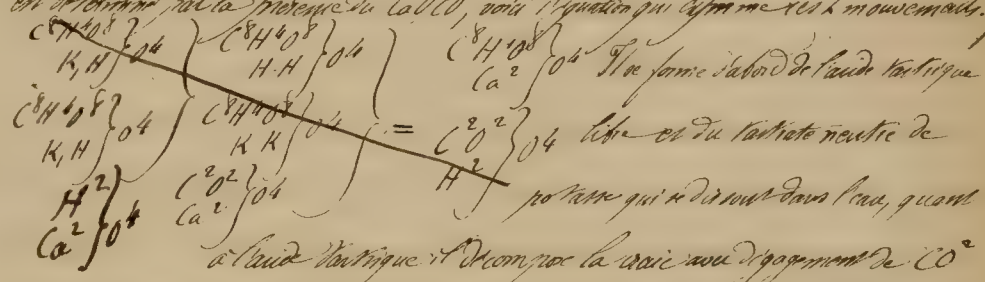 est déterminé par la présence du CaOCO², voici l'équation qui exprime ces 2 mouvements.
C⁸H⁴O⁸ } O⁴ C⁸H⁴O⁸ } O⁴ C⁸H⁴O⁸ } O⁴ Il se forme d'abord de l'acide tartrique
K, H H.H Ca²
C⁸H⁴O⁸ } O⁴ C⁸H⁴O⁸ } O⁴ = C²O² } O⁴ libre et du tartrate neutre de
K, H K K H²
H² } O⁴ C²O² } O⁴ potasse qui se dissout dans l'eau, quant
Ca² Ca²
à l'acide tartrique il décompose la craie avec dégagement de CO²